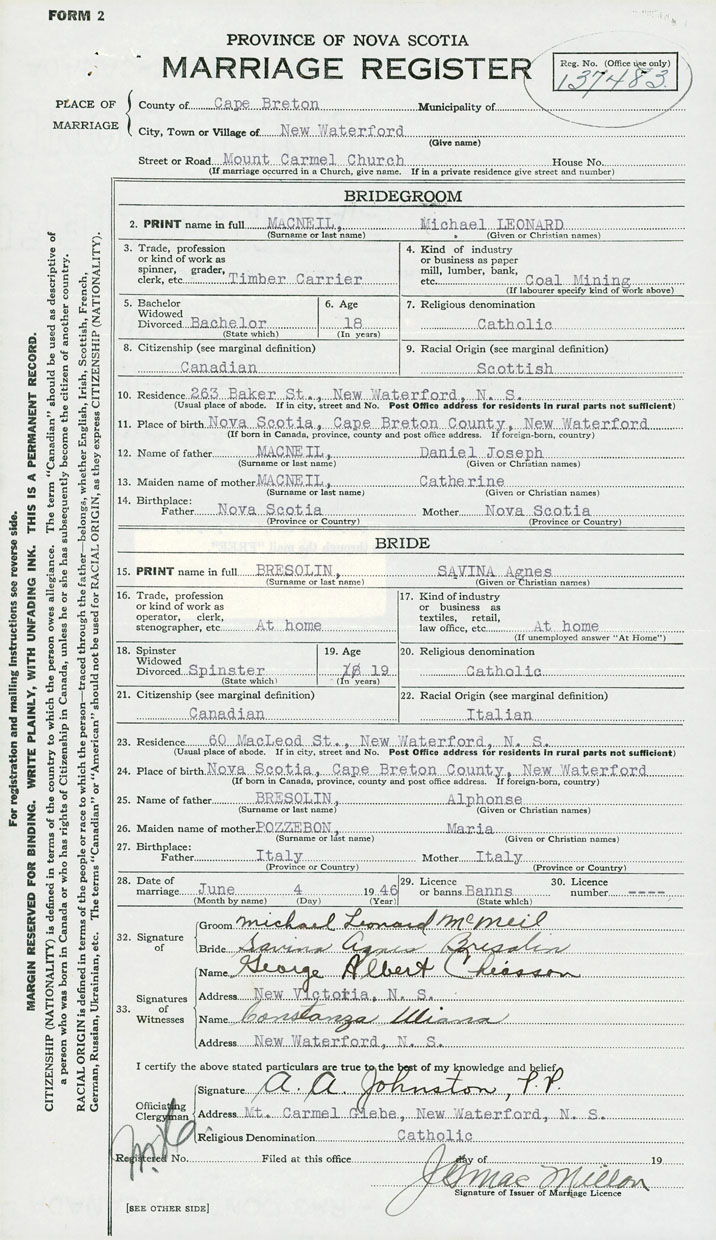 FORM 2
PROVINCE OF NOVA SCOTIA
MARRIAGE REGISTER
Reg. No. (Office use only)
137483
PLACE OF MARRIAGE
County of Cape Breton Municipality of
City, Town or Village of New Waterford
(Give name)
Street or Road Mount Carmel Church House No.
(If marriage occurred in a Church, give name. If in a private residence give street and number)
BRIDEGROOM
2. PRINT name in full MACNEIL, Michael LEONARD
(Surname or last name) (Given or Christian names)
3. Trade, profession or kind of work as spinner, grader, clerk, etc. Timber Carrier
4. Kind of industry or business as paper mill, lumber, bank, etc. Coal Mining
(If labourer specify kind of work above)
5. Bachelor Widowed Divorced Bachelor
(State which)
6. Age 18
(In years)
7. Religious denomination
Catholic
8. Citizenship (see marginal definition)
Canadian
9. Racial Origin (see marginal definition)
Scottish
10. Residence 263 Baker St., New Waterford, N. S.
(Usual place of abode. If in city, street and No. Post Office address for residents in rural parts not sufficient)
11. Place of birth Nova Scotia, Cape Breton County, New Waterford
(If born in Canada, province, county and post office address. If foreign-born, country)
12. Name of father MACNEIL, Daniel Joseph
(Surname or last name) (Given or Christian names)
13. Maiden name of mother MACNEIL, Catherine
(Surname or last name) (Given or Christian names)
14. Birthplace:
Father Nova Scotia Mother Nova Scotia
(Province or Country) (Province or Country)
BRIDE
15. PRINT name in full BRESOLIN, SAVINA Agnes
(Surname or last name) (Given or Christian names)
16. Trade, profession or kind of work as operator, clerk, stenographer, etc. At home
17. Kind of industry or business as textiles, retail, law office, etc. At home
(If unemployed answer "At Home")
18. Spinster Widowed Divorced Spinster
(State which)
19. Age 18 19
(In years)
20. Religious denomination
Catholic
21. Citizenship (see marginal definition)
Canadian
22. Racial Origin (see marginal definition)
Italian
23. Residence 60 MacLeod St., New Waterford, N. S.
(Usual place of abode. If in city, street and No. Post Office address for residents in rural parts not sufficient)
24. Place of birth Nova Scotia, Cape Breton County, New Waterford
(If born in Canada, province, county and post office address. If foreign-born, country)
25. Name of father BRESOLIN, Alphonse
(Surname or last name) (Given or Christian names)
26. Maiden name of mother POZZEBON, Maria
(Surname or last name) (Given or Christian names)
27. Birthplace:
Father Italy Mother Italy
(Province or Country) (Province or Country)
28. Date of marriage June 4 1946
(Month by name) (Day) (Year)
29. Licence or banns Banns
(State which)
30. Licence number ----
32. Signature of
Groom Michael Leonard McNeil
Bride Savina Agnes Bresolin
33. Signatures of Witnesses
Name George Albert Chiasson
Address New Victoria, N. S.
Name Constanza Uliana
Address New Waterford, N. S.
I certify the above stated particulars are true to the best of my knowledge and belief
Officiating Clergyman
Signature A. A. Johnston, P.P.
Address Mt. Carmel Glebe, New Waterford, N. S.
Religious Denomination Catholic
Registered No. Filed at this office day of 19
Mac Millon
Signature of Issuer of Marriage Licence
[SEE OTHER SIDE]
For registration and mailing instructions see reverse side.
MARGIN RESERVED FOR BINDING. WRITE PLAINLY, WITH UNFADING INK. THIS IS A PERMANENT RECORD.
CITIZENSHIP (NATIONALITY) is defined in terms of the country to which the person owes allegiance. The term "Canadian" should be used as descriptive of
a person who was born in Canada or who has rights of Citizenship in Canada, unless he or she has subsequently become the citizen of another country.
RACIAL ORIGIN is defined in terms of the people or race to which the person—traced through the father—belongs, whether English, Irish, Scottish, French,
German, Russian, Ukrainian, etc. The terms "Canadian" or "American" should not be used for RACIAL ORIGIN, as they express CITIZENSHIP (NATIONALITY).